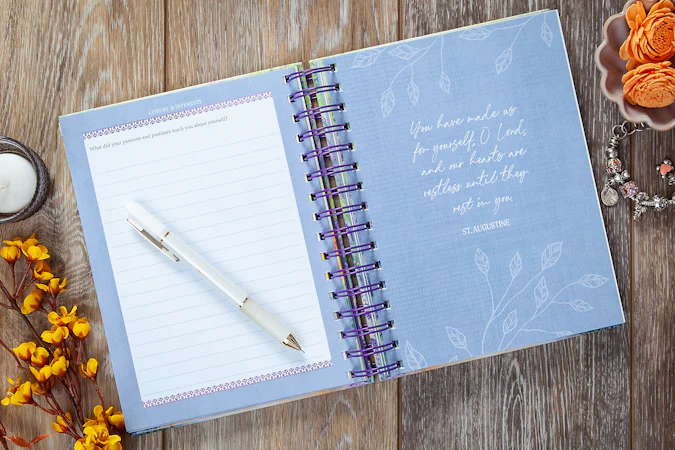 LEISURE & INTERESTS
What did your passions and pastimes teach you about yourself?
You have made us
for yourself, O Lord,
and our hearts are
restless until they
rest in you.
ST. AUGUSTINE